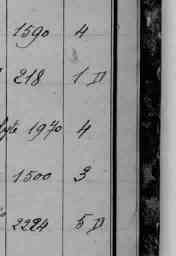 1590 4
218 1 D
1970 4
1500 3
2224 5 D